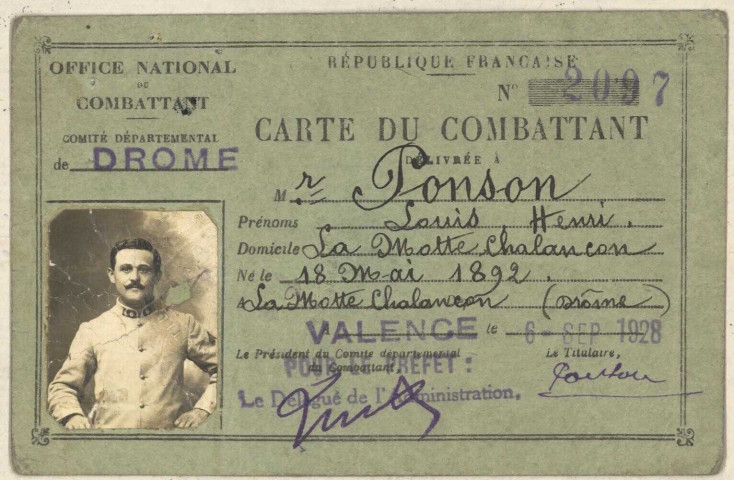 OFFICE NATIONAL
DU
COMBATTANT
COMITÉ DÉPARTEMENTAL
de DROME
RÉPUBLIQUE FRANÇAISE
N° 2097
CARTE DU COMBATTANT
DÉLIVRÉE À
Mr Ponson
Prénoms Louis Henri.
Domicile La Motte Chalancon
Né le 18 Mai 1892.
à La Motte Chalancon (Drôme)
VALENCE le 6 - SEP 1928
Le Président du Comité départemental
du Combattant,
POUR LE PREFET :
Le Délégué de l'Administration,
Le Titulaire,
Ponson